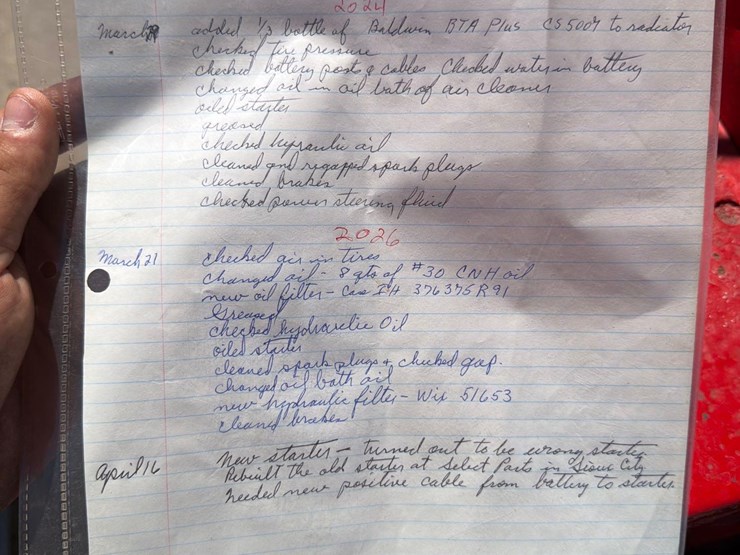 2024
March added 1/3 bottle of Baldwin BTA Plus CS5004 to radiator
checked tire pressure
checked battery posts & cables Checked water in battery
changed oil in oil bath of air cleaner
oiled starter
greased
checked hydraulic oil
cleaned and regapped spark plugs
cleaned brakes
checked power steering fluid
2026
March 21 checked air in tires
changed oil - 8 qts of #30 CNH oil
new oil filter - Cas IH 376375R91
Greased
checked hydraulic Oil
oiled starter
cleaned spark plugs & checked gap.
changed oil bath oil
new hydraulic filter - Wix 51653
cleaned brakes
April 16 New starter - turned out to be wrong starter
Rebuilt the old starter at Select Parts in Sioux City
needed new positive cable from battery to starter.